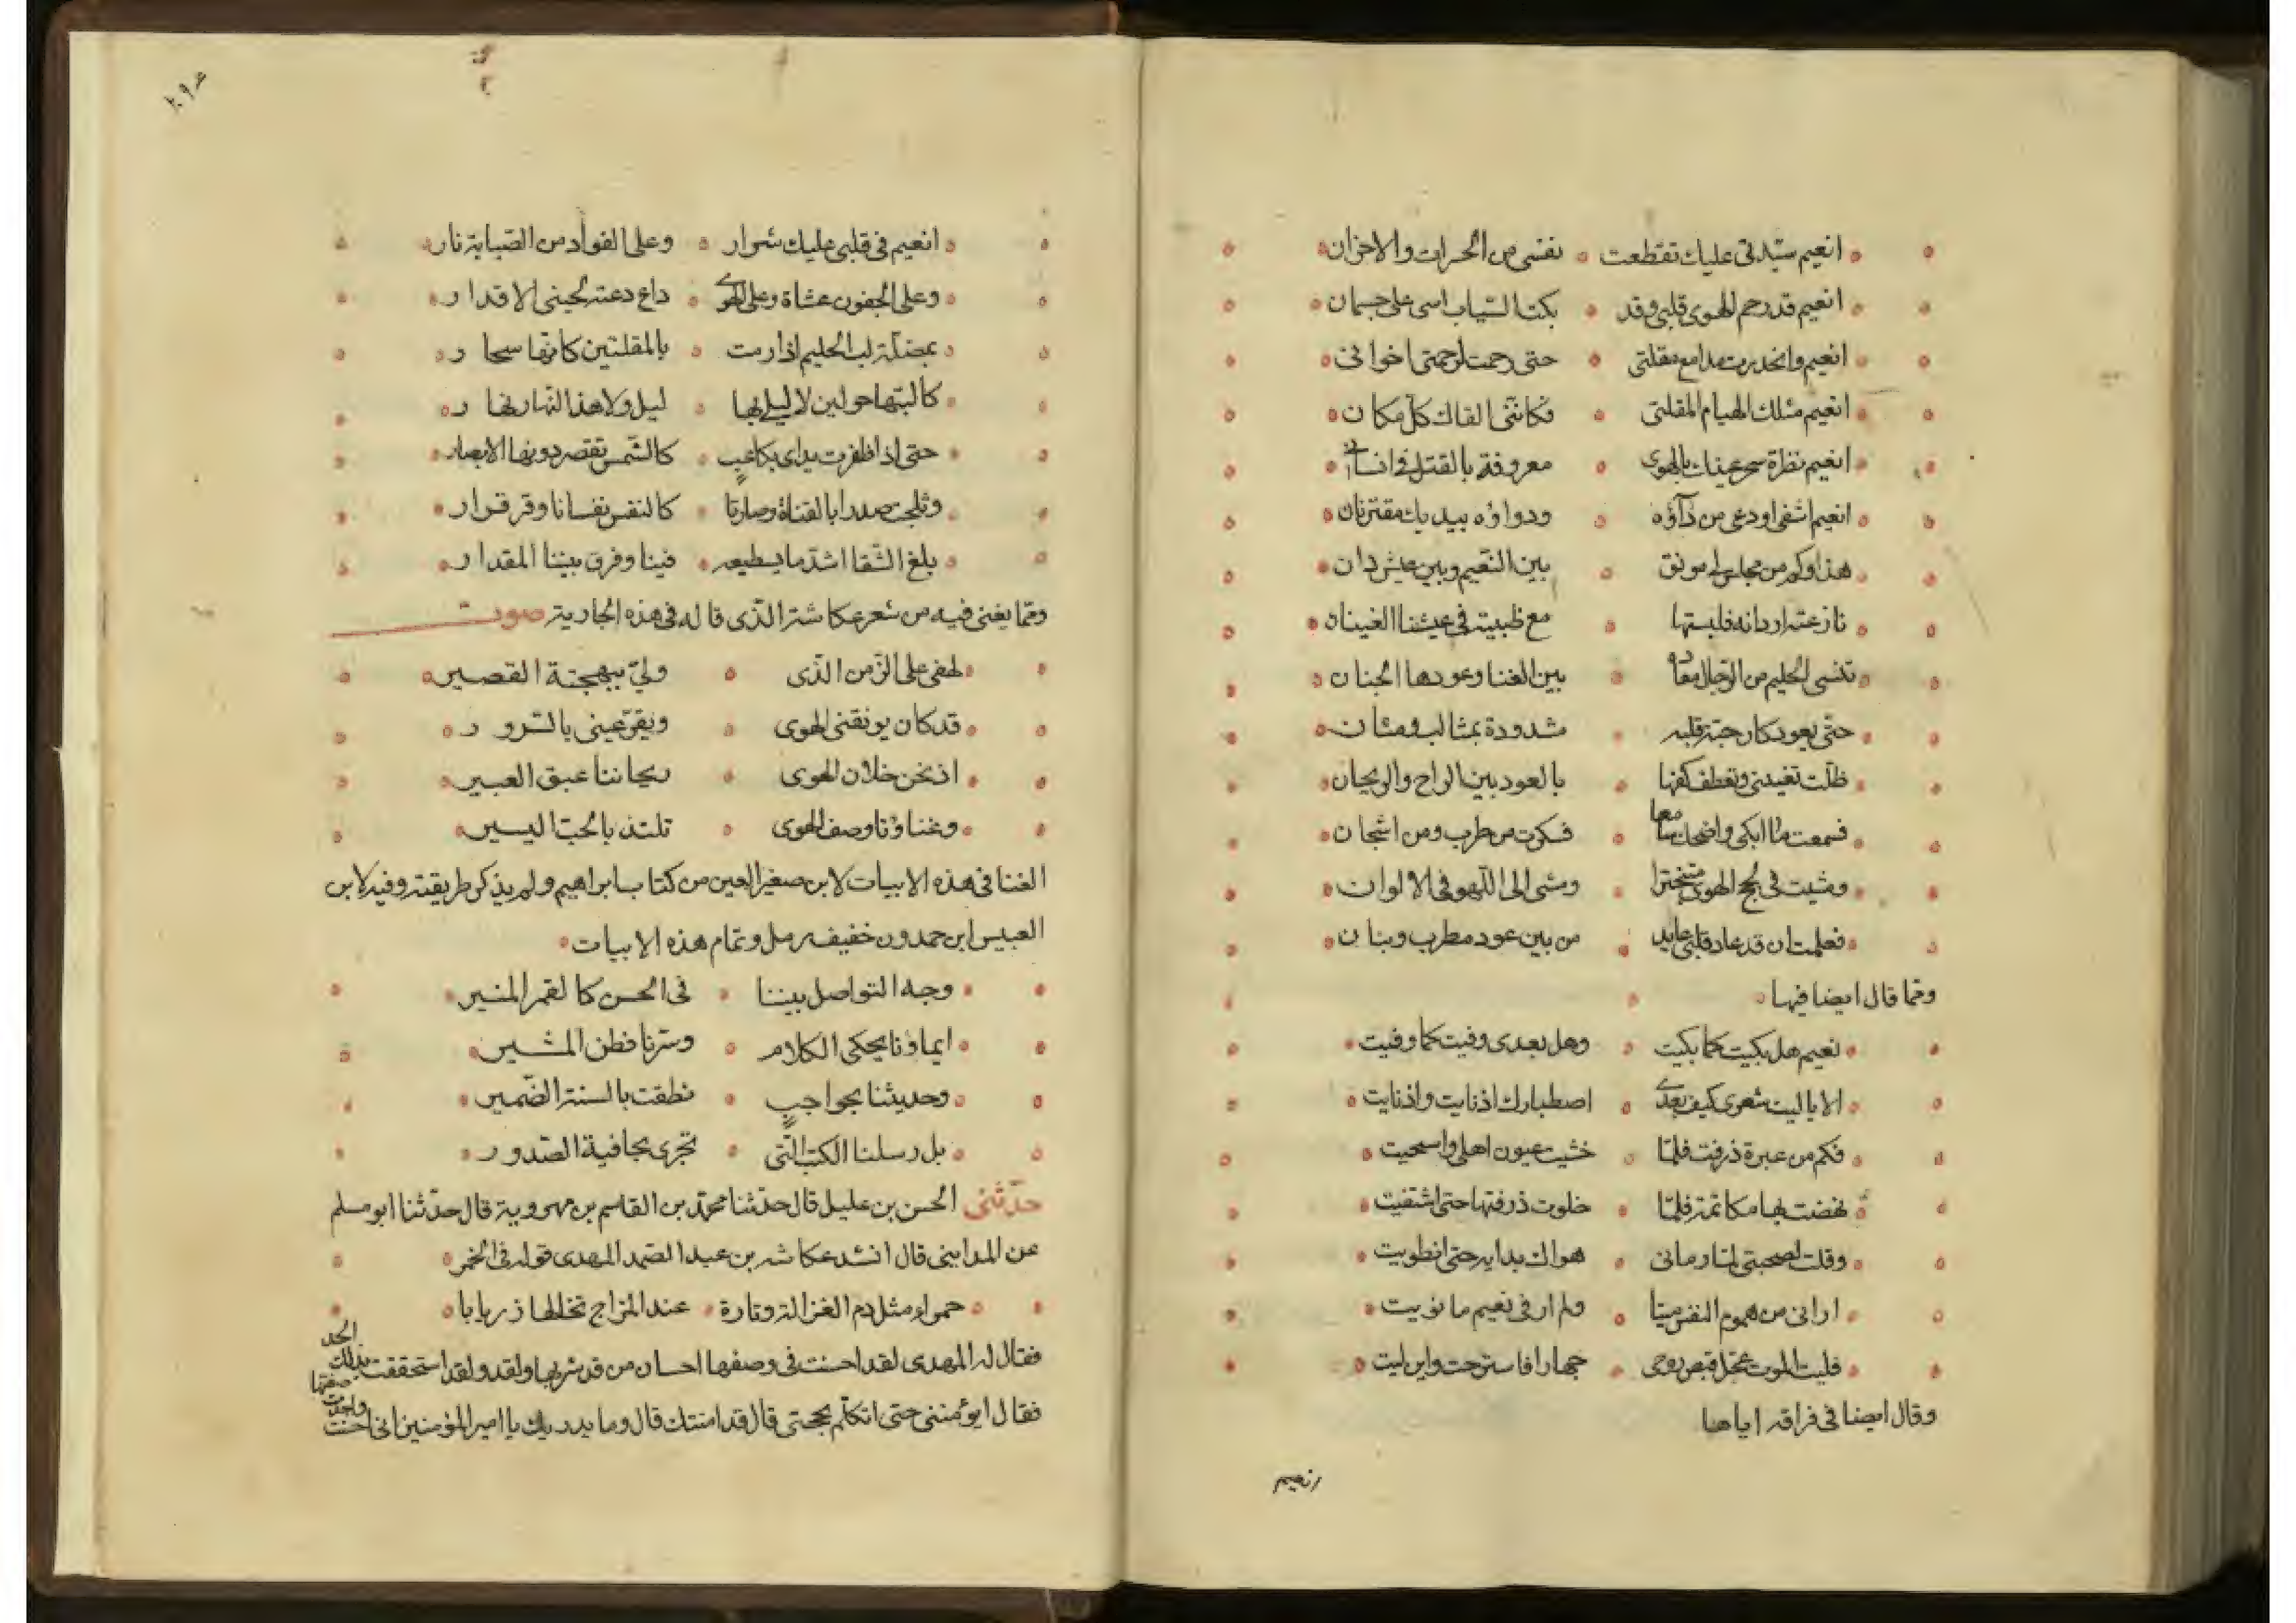 انعيم سيدتي عليك تقطعت نفسي من الحسرات والاحزان
انعيم قد رحم الهوى قلبي وقد بكت الثياب اسى على جسمان
انعيم وانحدرت مدامع مقلتي حتى رحمت لرحمتي اخواني
انعيم مثلك الهيام المقلتي فكانني القاك كل مكان
انعيم نظرة سحر عينك بالهوى معروفة بالقتل في انسان
انعيم اشفي او دعي من دآؤه ودواؤه بيديك مقترنان
هذا وكم من مجلس لي مونق بين النعيم وبين عيش دان
نازعته اردانه فلبستها مع ظبية في عيشنا الفينان
تنسي الحليم من الرجال معاده بين الغنا وعودها الحنان
حتى يعود كان حبة قلبه مشدودة بمثالث ومثان
ظلت تغنيني وتعطف كفها بالعود بين الراح والريحان
فسمعت ما ابكى واضحك سامعا فسكرت من طرب ومن اشجان
ومشيت في لجج الهوى متبخترا ومشى الى اللهو في الالوان
فعلمت ان قد عاد قلبي عايد من بين عود مطرب وبنان
ومما قال ايضا فيها
نعيم هل بكيت كما بكيت وهل بعدي وفيت كما وفيت
الا يا ليت شعري كيف بعدي اصطبارك اذ نايت واذ نايت
فكم من عبرة ذرفت فلما خشيت عيون اهلي واستحيت
نهضت بها مكاتمة فلما خلوت ذرفتها حتى اشتفيت
وقلت لصحبتي لما رماني هواك بدايه حتى انطويت
اراني من هموم النفس ميتا ولم ار في نعيم ما نويت
فليت الموت عجل قبض روحي جهارا فاسترحت واين ليت
وقال ايضا في فراقه اياها
انعيم
٢٩٤
انعيم في قلبي عليك شرار وعلى الفواد من الصبابة نار
وعلى الجفون غشاة وعلى الهوى داع دعته لحيني الاقدار
بمضلة لب الحليم اذا رمت بالمقلتين كانها سحار
كالبتها حولين لا ليلي بها ليل ولا هذا النهار نهار
حتى اذا ظفرت يداي بكاعب كالشمس تقصر دونها الابصار
وثلجت صدرا بالفتاة وصارتا كالنفس نفسانا وقر قرار
بلغ الشقا اشد ما يسطيعه فينا وفرق بيننا المقدار
ومما يغنى فيه من شعر عكاشة الذي قاله في هذه الجارية صوت
لهفي على الزمن الذي ولى ببهجته القصير
قد كان يونقني الهوى ويقر عيني بالسرور
اذ نحن خلان الهوى ريحاننا عبق العبير
وغناؤنا وصف الهوى نلتذ بالحب اليسير
الغنا في هذه الابيات لابن صغير العين من كتاب ابراهيم ولم يذكر طريقته وفيه لابن
العبيس ابن حمدون خفيف رمل وتمام هذه الابيات
وجه التواصل بيننا في الحسن كالقمر المنير
ايماؤنا يحكي الكلام وسرنا فطن المشير
وحديثنا بحواجب نطقت بالسنة الضمير
بل رسلنا الكتب التي تجري بخافية الصدور
حدثني الحسن بن عليل قال حدثنا محمد بن القاسم بن مهروية قال حدثنا ابو مسلم
عن المدايني قال انشد عكاشه بن عبد الصمد المهدي قوله في الخمر
حمراء مثل دم الغزالة وتارة عند المزاج تخالها زريابا
فقال له المهدي لقد احسنت في وصفها احسان من قد شربها ولقد ولقد استحققت بذلك الحد
فقال ايؤمنني حتى اتكلم بحجتي قال قد امنتك قال وما يدريك يا امير المؤمنين اني احسنت واجدت صفتها